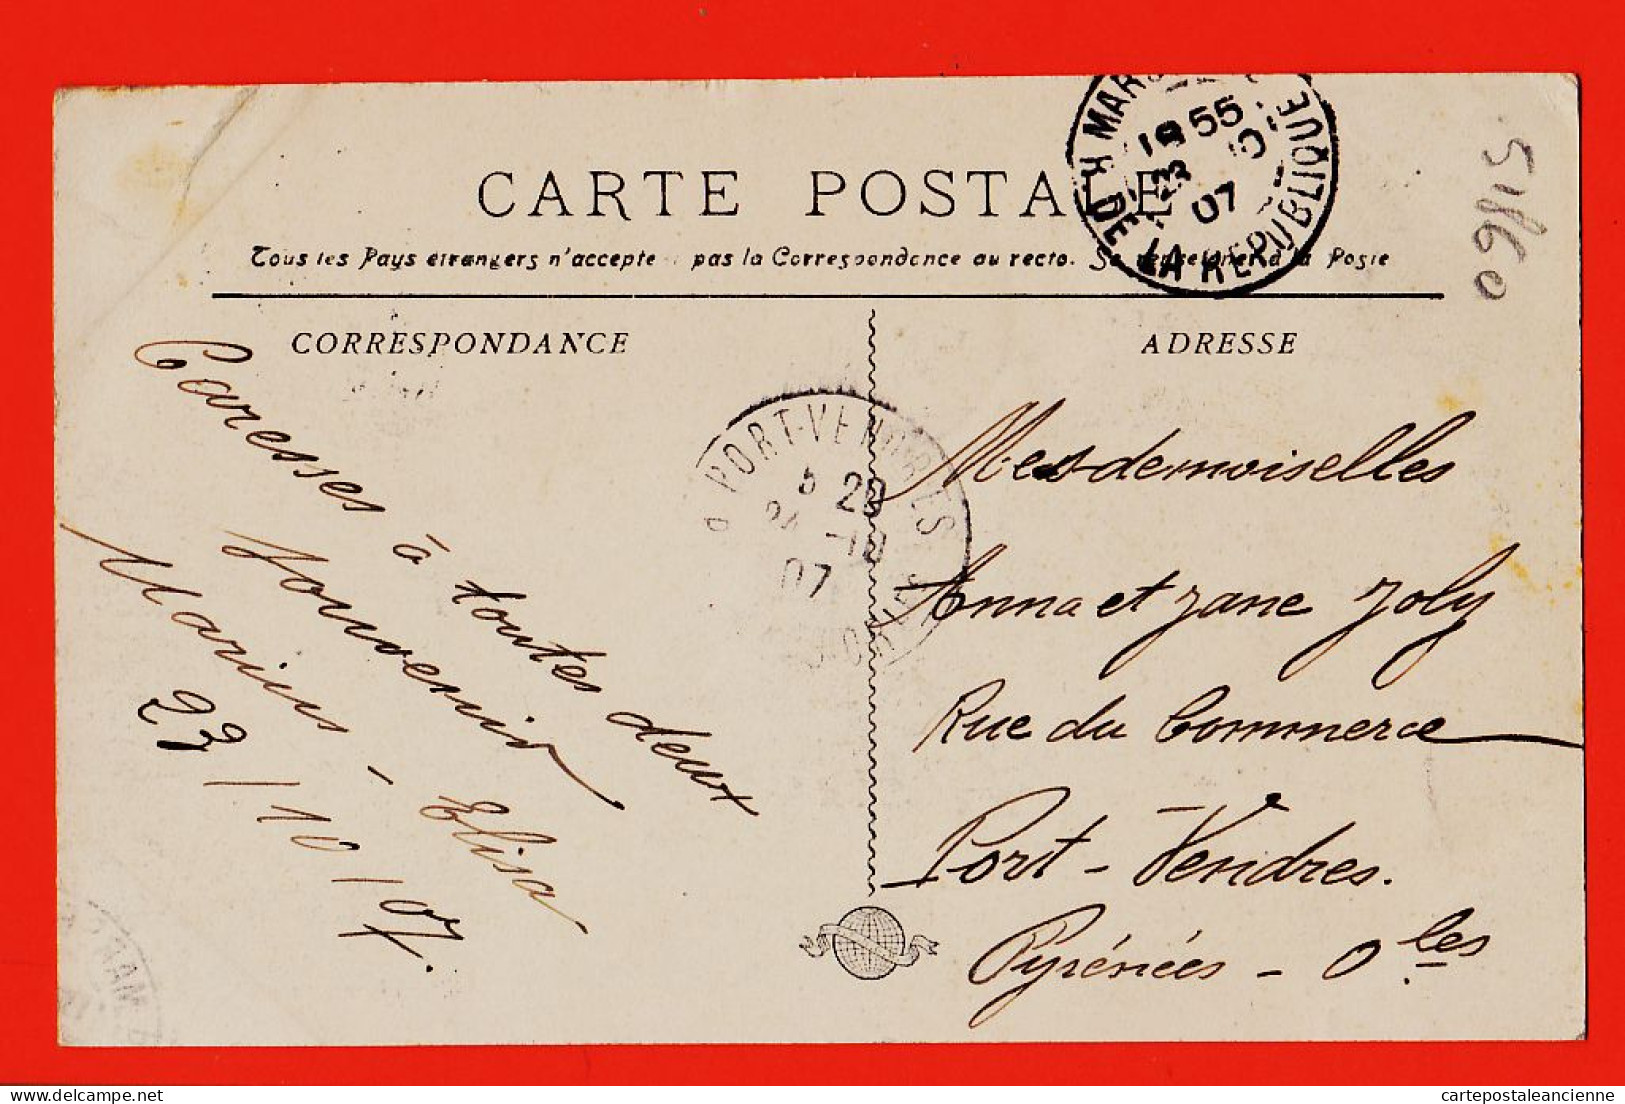 CARTE POSTALE
Tous les Pays étrangers n'acceptent pas la Correspondance au recto. Se renseigner à la Poste
CORRESPONDANCE
ADRESSE
DE LA REPUBLIQUE
19 55
23 10
07
51860
PORT-VENDRES
5 25
24 -10
07
Caresses à toutes deux
Souvenir
Marius - Elisa
23/10/07.
Mesdemoiselles
Anna et Jane Joly
Rue du Commerce
Port-Vendres.
Pyrénées - O les
cartepostaleancienne